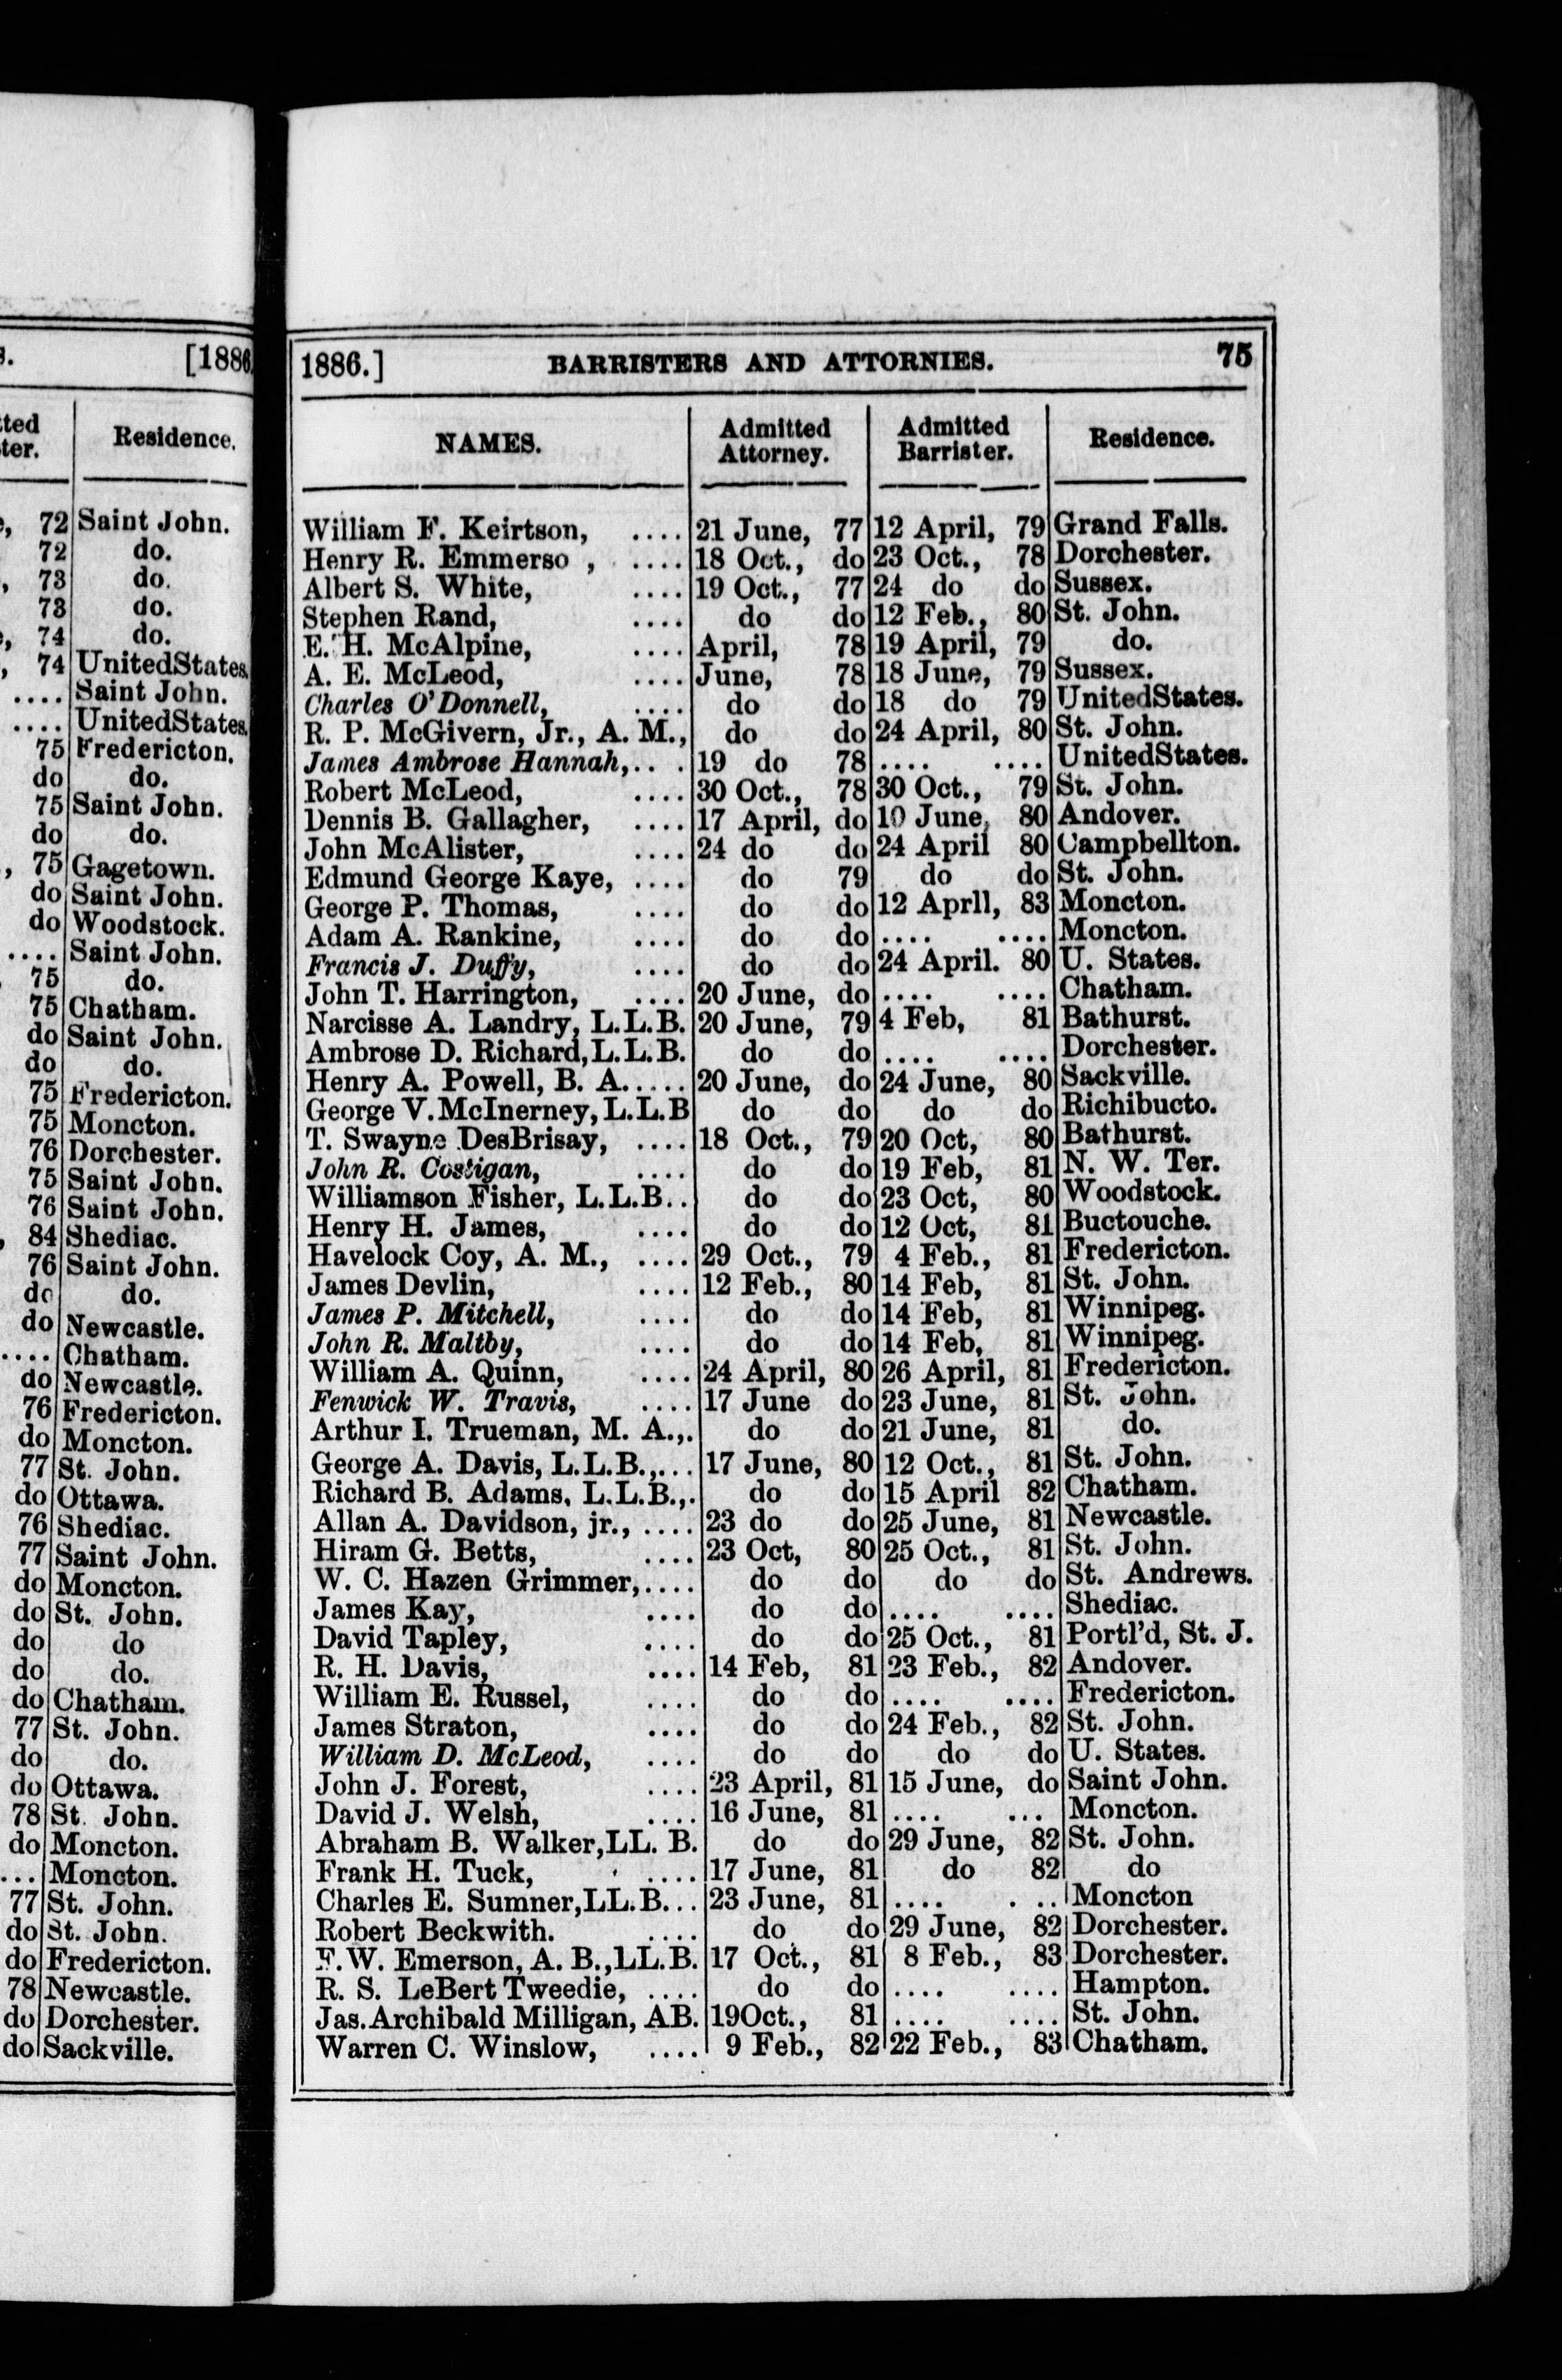 s. [1886.
tted
ter. Residence.
, 72 Saint John.
72 do.
, 73 do.
73 do.
, 74 do.
, 74 UnitedStates.
.... Saint John.
.... UnitedStates.
75 Fredericton.
do do.
75 Saint John.
do do.
, 75 Gagetown.
do Saint John.
do Woodstock.
.... Saint John.
75 do.
75 Chatham.
do Saint John.
do do.
75 Fredericton.
75 Moncton.
76 Dorchester.
75 Saint John.
76 Saint John.
, 84 Shediac.
76 Saint John.
do do.
do Newcastle.
.... Chatham.
do Newcastle.
76 Fredericton.
do Moncton.
77 St. John.
do Ottawa.
76 Shediac.
77 Saint John.
do Moncton.
do St. John.
do do
do do.
do Chatham.
77 St. John.
do do.
do Ottawa.
78 St. John.
do Moncton.
... Moncton.
77 St. John.
do St. John.
do Fredericton.
78 Newcastle.
do Dorchester.
do Sackville.
1886.] BARRISTERS AND ATTORNIES. 75
NAMES. Admitted Attorney. Admitted Barrister. Residence.
William F. Keirtson, .... 21 June, 77 12 April, 79 Grand Falls.
Henry R. Emmerso , .... 18 Oct., do 23 Oct., 78 Dorchester.
Albert S. White, .... 19 Oct., 77 24 do do Sussex.
Stephen Rand, .... do do 12 Feb., 80 St. John.
E. H. McAlpine, .... April, 78 19 April, 79 do.
A. E. McLeod, .... June, 78 18 June, 79 Sussex.
Charles O'Donnell, .... do do 18 do 79 UnitedStates.
R. P. McGivern, Jr., A. M., do do 24 April, 80 St. John.
James Ambrose Hannah,.. . 19 do 78 .... .... UnitedStates.
Robert McLeod, .... 30 Oct., 78 30 Oct., 79 St. John.
Dennis B. Gallagher, .... 17 April, do 10 June, 80 Andover.
John McAlister, .... 24 do do 24 April 80 Campbellton.
Edmund George Kaye, .... do 79 do do St. John.
George P. Thomas, .... do do 12 Aprll, 83 Moncton.
Adam A. Rankine, .... do do .... .... Moncton.
Francis J. Duffy, .... do do 24 April. 80 U. States.
John T. Harrington, .... 20 June, do .... .... Chatham.
Narcisse A. Landry, L.L.B. 20 June, 79 4 Feb, 81 Bathurst.
Ambrose D. Richard,L.L.B. do do .... .... Dorchester.
Henry A. Powell, B. A..... 20 June, do 24 June, 80 Sackville.
George V.McInerney,L.L.B do do do do Richibucto.
T. Swayne DesBrisay, .... 18 Oct., 79 20 Oct, 80 Bathurst.
John R. Costigan, .... do do 19 Feb, 81 N. W. Ter.
Williamson Fisher, L.L.B.. do do 23 Oct, 80 Woodstock.
Henry H. James, .... do do 12 Oct, 81 Buctouche.
Havelock Coy, A. M., .... 29 Oct., 79 4 Feb., 81 Fredericton.
James Devlin, .... 12 Feb., 80 14 Feb, 81 St. John.
James P. Mitchell, .... do do 14 Feb, 81 Winnipeg.
John R. Maltby, .... do do 14 Feb, 81 Winnipeg.
William A. Quinn, .... 24 April, 80 26 April, 81 Fredericton.
Fenwick W. Travis, .... 17 June do 23 June, 81 St. John.
Arthur I. Trueman, M. A.,. do do 21 June, 81 do.
George A. Davis, L.L.B.,... 17 June, 80 12 Oct., 81 St. John.
Richard B. Adams, L.L.B.,. do do 15 April 82 Chatham.
Allan A. Davidson, jr., .... 23 do do 25 June, 81 Newcastle.
Hiram G. Betts, .... 23 Oct, 80 25 Oct., 81 St. John.
W. C. Hazen Grimmer,.... do do do do St. Andrews.
James Kay, .... do do .... .... Shediac.
David Tapley, .... do do 25 Oct., 81 Portl'd, St. J.
R. H. Davis, .... 14 Feb, 81 23 Feb., 82 Andover.
William E. Russel, .... do do .... .... Fredericton.
James Straton, .... do do 24 Feb., 82 St. John.
William D. McLeod, .... do do do do U. States.
John J. Forest, .... 23 April, 81 15 June, do Saint John.
David J. Welsh, .... 16 June, 81 .... ... Moncton.
Abraham B. Walker,LL. B. do do 29 June, 82 St. John.
Frank H. Tuck, .... 17 June, 81 do 82 do
Charles E. Sumner,LL.B... 23 June, 81 .... . .. Moncton
Robert Beckwith. .... do do 29 June, 82 Dorchester.
F.W. Emerson, A. B.,LL.B. 17 Oct., 81 8 Feb., 83 Dorchester.
R. S. LeBert Tweedie, .... do do .... .... Hampton.
Jas.Archibald Milligan, AB. 19Oct., 81 .... .... St. John.
Warren C. Winslow, .... 9 Feb., 82 22 Feb., 83 Chatham.